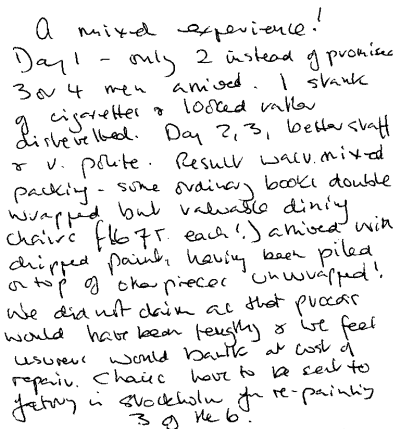 A mixed experience!
Day 1 - only 2 instead of promised
3 or 4 men arrived. 1 stank
of cigarettes & looked rather
dishevelled. Day 2, 3, better staff
& v. polite. Result was v. mixed
packing - some ordinary books double
wrapped but valuable dining
chairs ( each!) arrived with
chipped paint having been piled
on top of other pieces unwrapped!
We did not claim as that process
would have been lengthy & we feel
insurers would baulk at cost of
repair. Chairs have to be sent to
factory in Stockholm for re-painting
3 of the 6.